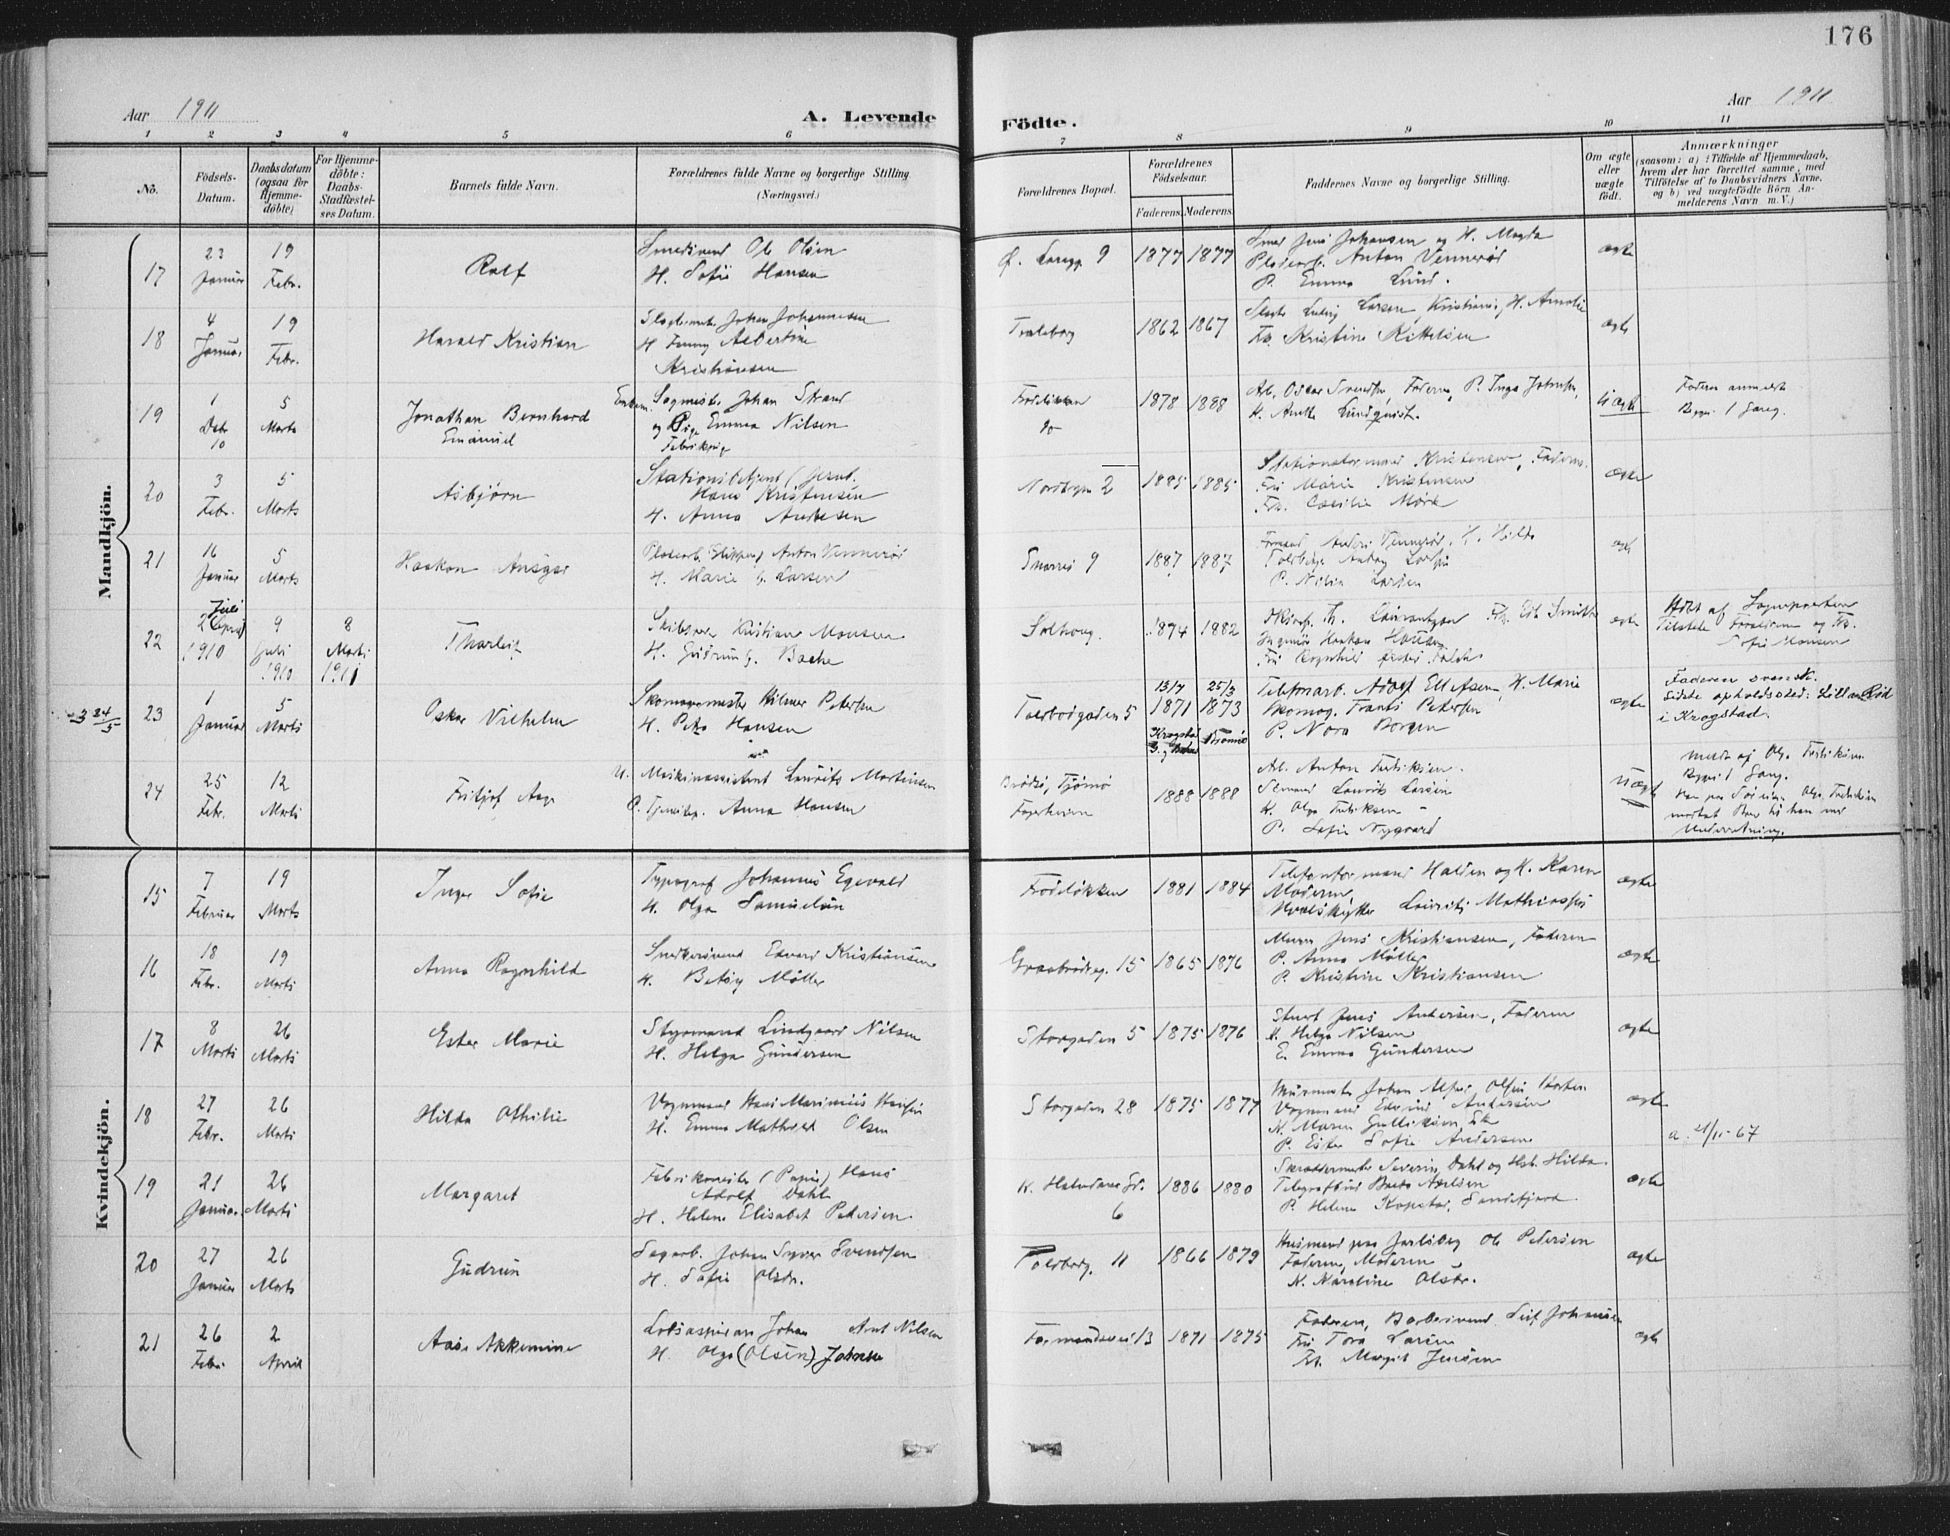 176
Aar 1911
A. Levende
Födte.
Aar 1911
1 2 3 4 5 6 7 8 9 10 11
No.
Födsels-Datum.
Daabsdatum (ogsaa for Hjemme-döbte)
For Hjemme-döbte: Daabs-Stadfæstel-ses Datum.
Barnets fulde Navn.
Forældrenes fulde Navne og borgerlige Stilling.
(Næringsvei.)
Forældrenes Bopæl.
Forældrenes Födselsaar.
Faderens. Moderens.
Faddernes Navne og borgerlige Stilling.
Om ægte eller uægte födt.
Anmærkninger
(saasom: a) i Tilfælde af Hjemmedaab,
hvem der har forrettet samme, med
Tilföielse af to Daabsvidners Navne,
og b) ved uægtefödte Börn An-
melderens Navn m. V.)
Mandkjön.
17 23 Januar 19 Febr. Rolf
Smedsvend Ole Olsen
H. Sofie Hansen
9 1877 1877
Smed Jens Johansen og H. Magda
Anton Vennerød
P. Emma Lund.
ægte
18 4 Januar 19 Febr. Harald Kristian
Johan Johannesen
H. Jenny Albertine
Kristiansen
Træleborg 1862 1867
Ludvig Larsen, Kristiania, H. Amalie
Frk. Kristine Kittelsen
ægte
19 1 Dcbr 10 5 Marts Jonathan Bernhard
Emanuel
Enkem. Sagmest. Johan Strand
og Pige Emma Nilsen
Fabrikpige
Frodeløkken
1878 1888
Arb. Oscar Svendsen, Faderen, P. Inga Johnsen,
K. Anette Lundquist.
uægte
Faderen anmeldt
Begges 1 Gang.
20 3 Febr. 5 Marts Asbjørn
Stationsbetjent (Jernb.
Hans Kristensen
H. Anna Andresen
Nordbyen 2 1885 1885
Stationsformand Kristensen, Faderen.
Fru Marie Kristensen
Frk. Cæcilie Mørk
ægte
21 16 Januar 5 Marts Haakon Ansgar
Anton Vennerød
H. Marie f. Larsen
Snarrei 9 1887 1887
Formand Anders Vennerød, H. Hilda
P. Nilia Larsen
ægte
22 2 Juli 1910 9 Juli 1910 8 Marts 1911 Thorleif
Skibsfører Kristian Monsen
H. Gudrun f. Bache
Solhaug. 1874 1882
Th. Lauvantzen Edv Smith
Ingeniør Haakon Hansen
Fru Ragnhild
ægte
Døbt af Sognepresten
Tilstede Forældrene og Frk.
Sofie Monsen
23 1 Januar 5 Marts Oskar Vilhelm
Skomagermester Hilmer Petersen
H. Petra Hansen
Toldbodgaden 5
13/7 1871 25/3 1873
Krogstad
Tromsø
Telefonarb. Adolf Ellefsen, H. Marie
Skomag. Frants Petersen
P. Nora Borgen
ægte
Faderen svensk.
Sidste opholdssted: Lillan Rød
i Krogstad.
-3 24/5
24 25 Febr. 12 Marts Fritjof Aage
U. Maskinassistent Laurits Martinsen
P. Tjenestep. Anna Hansen
Brødsø, Tjømø
Fagerheim
1888 1888
Arb. Anton Fredriksen.
Sømand Laurits Larsen
K. Olga Fredriksen
P. Sofie Nygaard
uægte
meldt af Olga Fredriksen
Begges 1 Gang.
Underretning.
Kvindekjön.
15 7 Februar 19 Marts Inger Sofie
Typograf Johannes Egevald
H. Olga Samuelsen
Frodeløkken 1881 1884
Telefonformand Halden og H. Karen
Moderen,
Hvalskytter Laurits Mathiassen
ægte
16 18 Febr. 19 Marts Anna Ragnhild
Snedkersvend Edvard Kristiansen
H. Betsy Møller
Graabrødreg. 15 1865 1876
Murer Jens Kristiansen, Faderen
P. Anna Møller
P. Kristine Kristiansen
ægte
17 8 Marts 26 Marts Ester Marie
Styrmand Lindgaard Nilsen
H. Helga Gundersen
Storgaden 5 1875 1876
Stuert Jens Andersen, Faderen
K. Helga Nilsen
E. Emma Gundersen
ægte
18 27 Febr. 26 Marts Hilda Othilie
Vognmand Hans Marinius Hansen
H. Emma Mathilde Olsen
Storgaden 28 1875 1877
Murmester Johan Alfred Olsen Horten
Vognmand Edvard Andersen
K. Maren Gulliksen, Ek
P. Ester Sofie Andersen
ægte
a. 21/11-67
19 21 Januar 26 Marts Margaret
Fabrikmester (Papir) Hans
Adolf Dahl
H. Helene Elisabet Pedersen
K. Halvdans Gd. 6 1886 1880
Skræddermester Severin Dahl og Hst. Hilda
Telegrafbud Axelsen
P. Helene Kopstad, Sandefjord
ægte
20 27 Januar 26 Marts Gudrun
Sagarb. Johan Syver Svendsen
H. Sofie Olsdr.
Toldbodg. 11 1866 1879
Husmand paa Jarlsberg Ole Petersen
Faderen, Moderen
K. Karoline Olsdr.
ægte
21 26 Febr. 2 April Aase Akkemine
Losaspirant Johan Arnt Nilsen
H. Olga (Olsen) Johnsen
Formandsvei 13 1871 1875
Faderen, Barbersvend Leif Johansen
Fru Tora Larsen
Frk. Margit Jensen
ægte